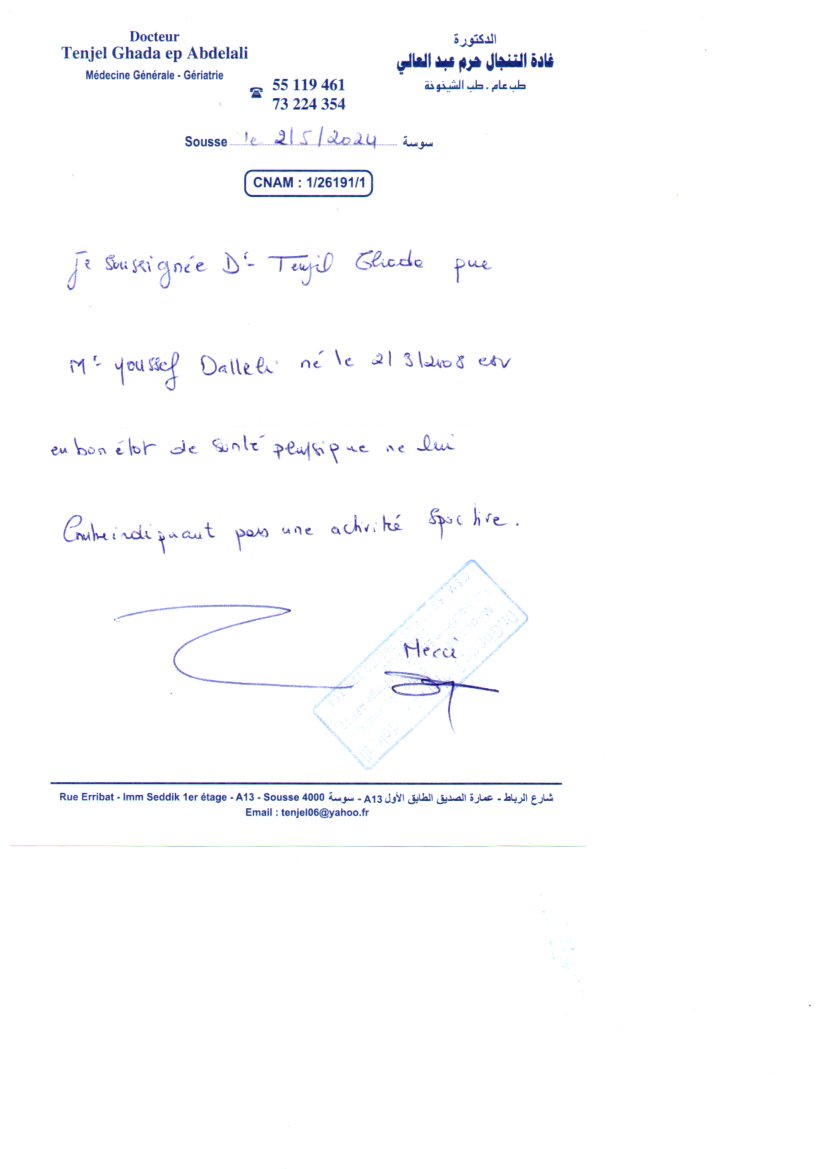 Docteur
Tenjel Ghada ep Abdelali
Médecine Générale - Gériatrie
الدكتورة
غادة التنجال حرم عبد العالي
طب عام . طب الشيخوخة
☎ 55 119 461
73 224 354
Sousse le 2/5/2024 سوسة
CNAM : 1/26191/1
Je souseignée Dr Tenjil Ghada que
Mr youssef Dalleli né le 2/3/2008 est
en bon état de santé physique ne lui
Contreindiquant pas une activité sportive.
Merci
Rue Erribat - Imm Seddik 1er étage - A13 - Sousse 4000 شارع الرباط - عمارة الصديق الطابق الأول A13 - سوسة
Email : tenjel06@yahoo.fr